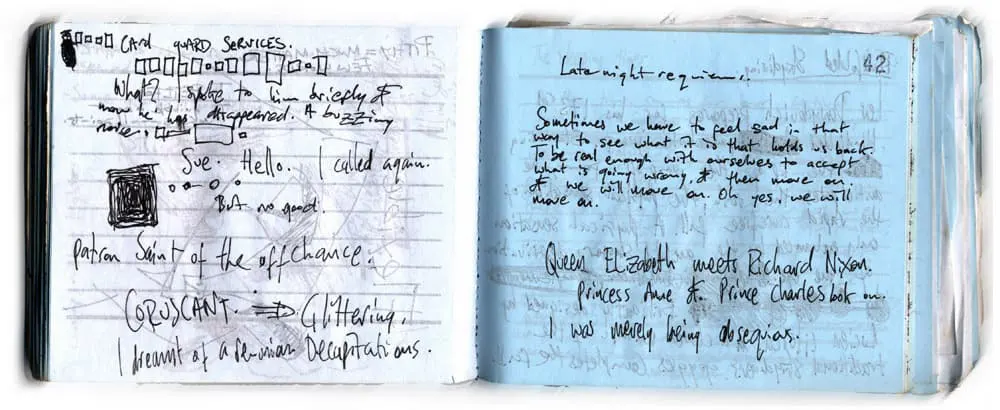 CARD GUARD SERVICES.
What? I spoke to him briefly &
now he has disappeared. A buzzing
noise.
Sue. Hello. I called again.
But no good.
patron Saint of the off chance.
CORUSCANT. ⇒ Glittering.
I dreamt of a Decapitations.
42
Late night requiem.
Sometimes we have to feel sad in that
way to see what it is that holds us back.
To be real enough with ourselves to accept
what is going wrong, & then move on.
& we will move on. Oh yes, we will
move on.
Queen Elizabeth meets Richard Nixon.
Princess Anne &. Prince Charles look on.
I was merely being obsequious.